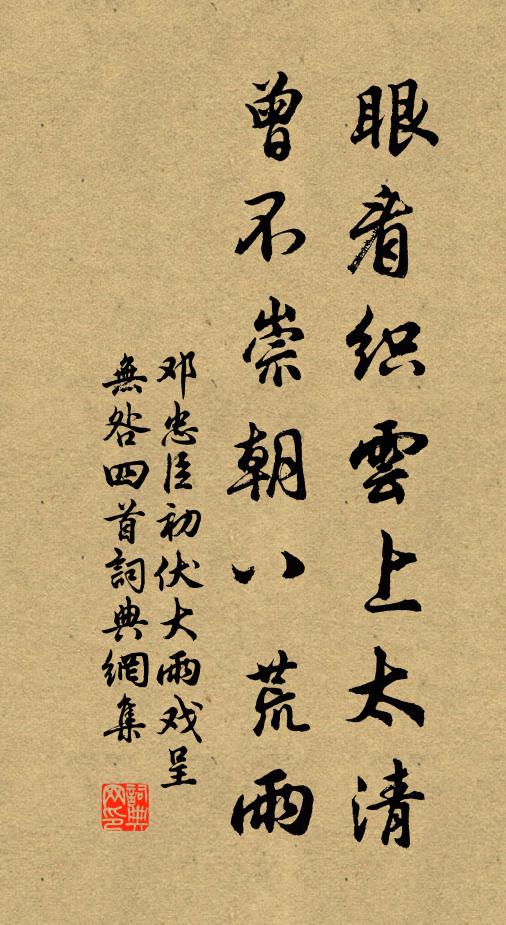 眼看织雲上太清
曾不崇朝八荒雨
邓忠臣初伏大雨戏呈
無咎四首詞典網集
詞典网印